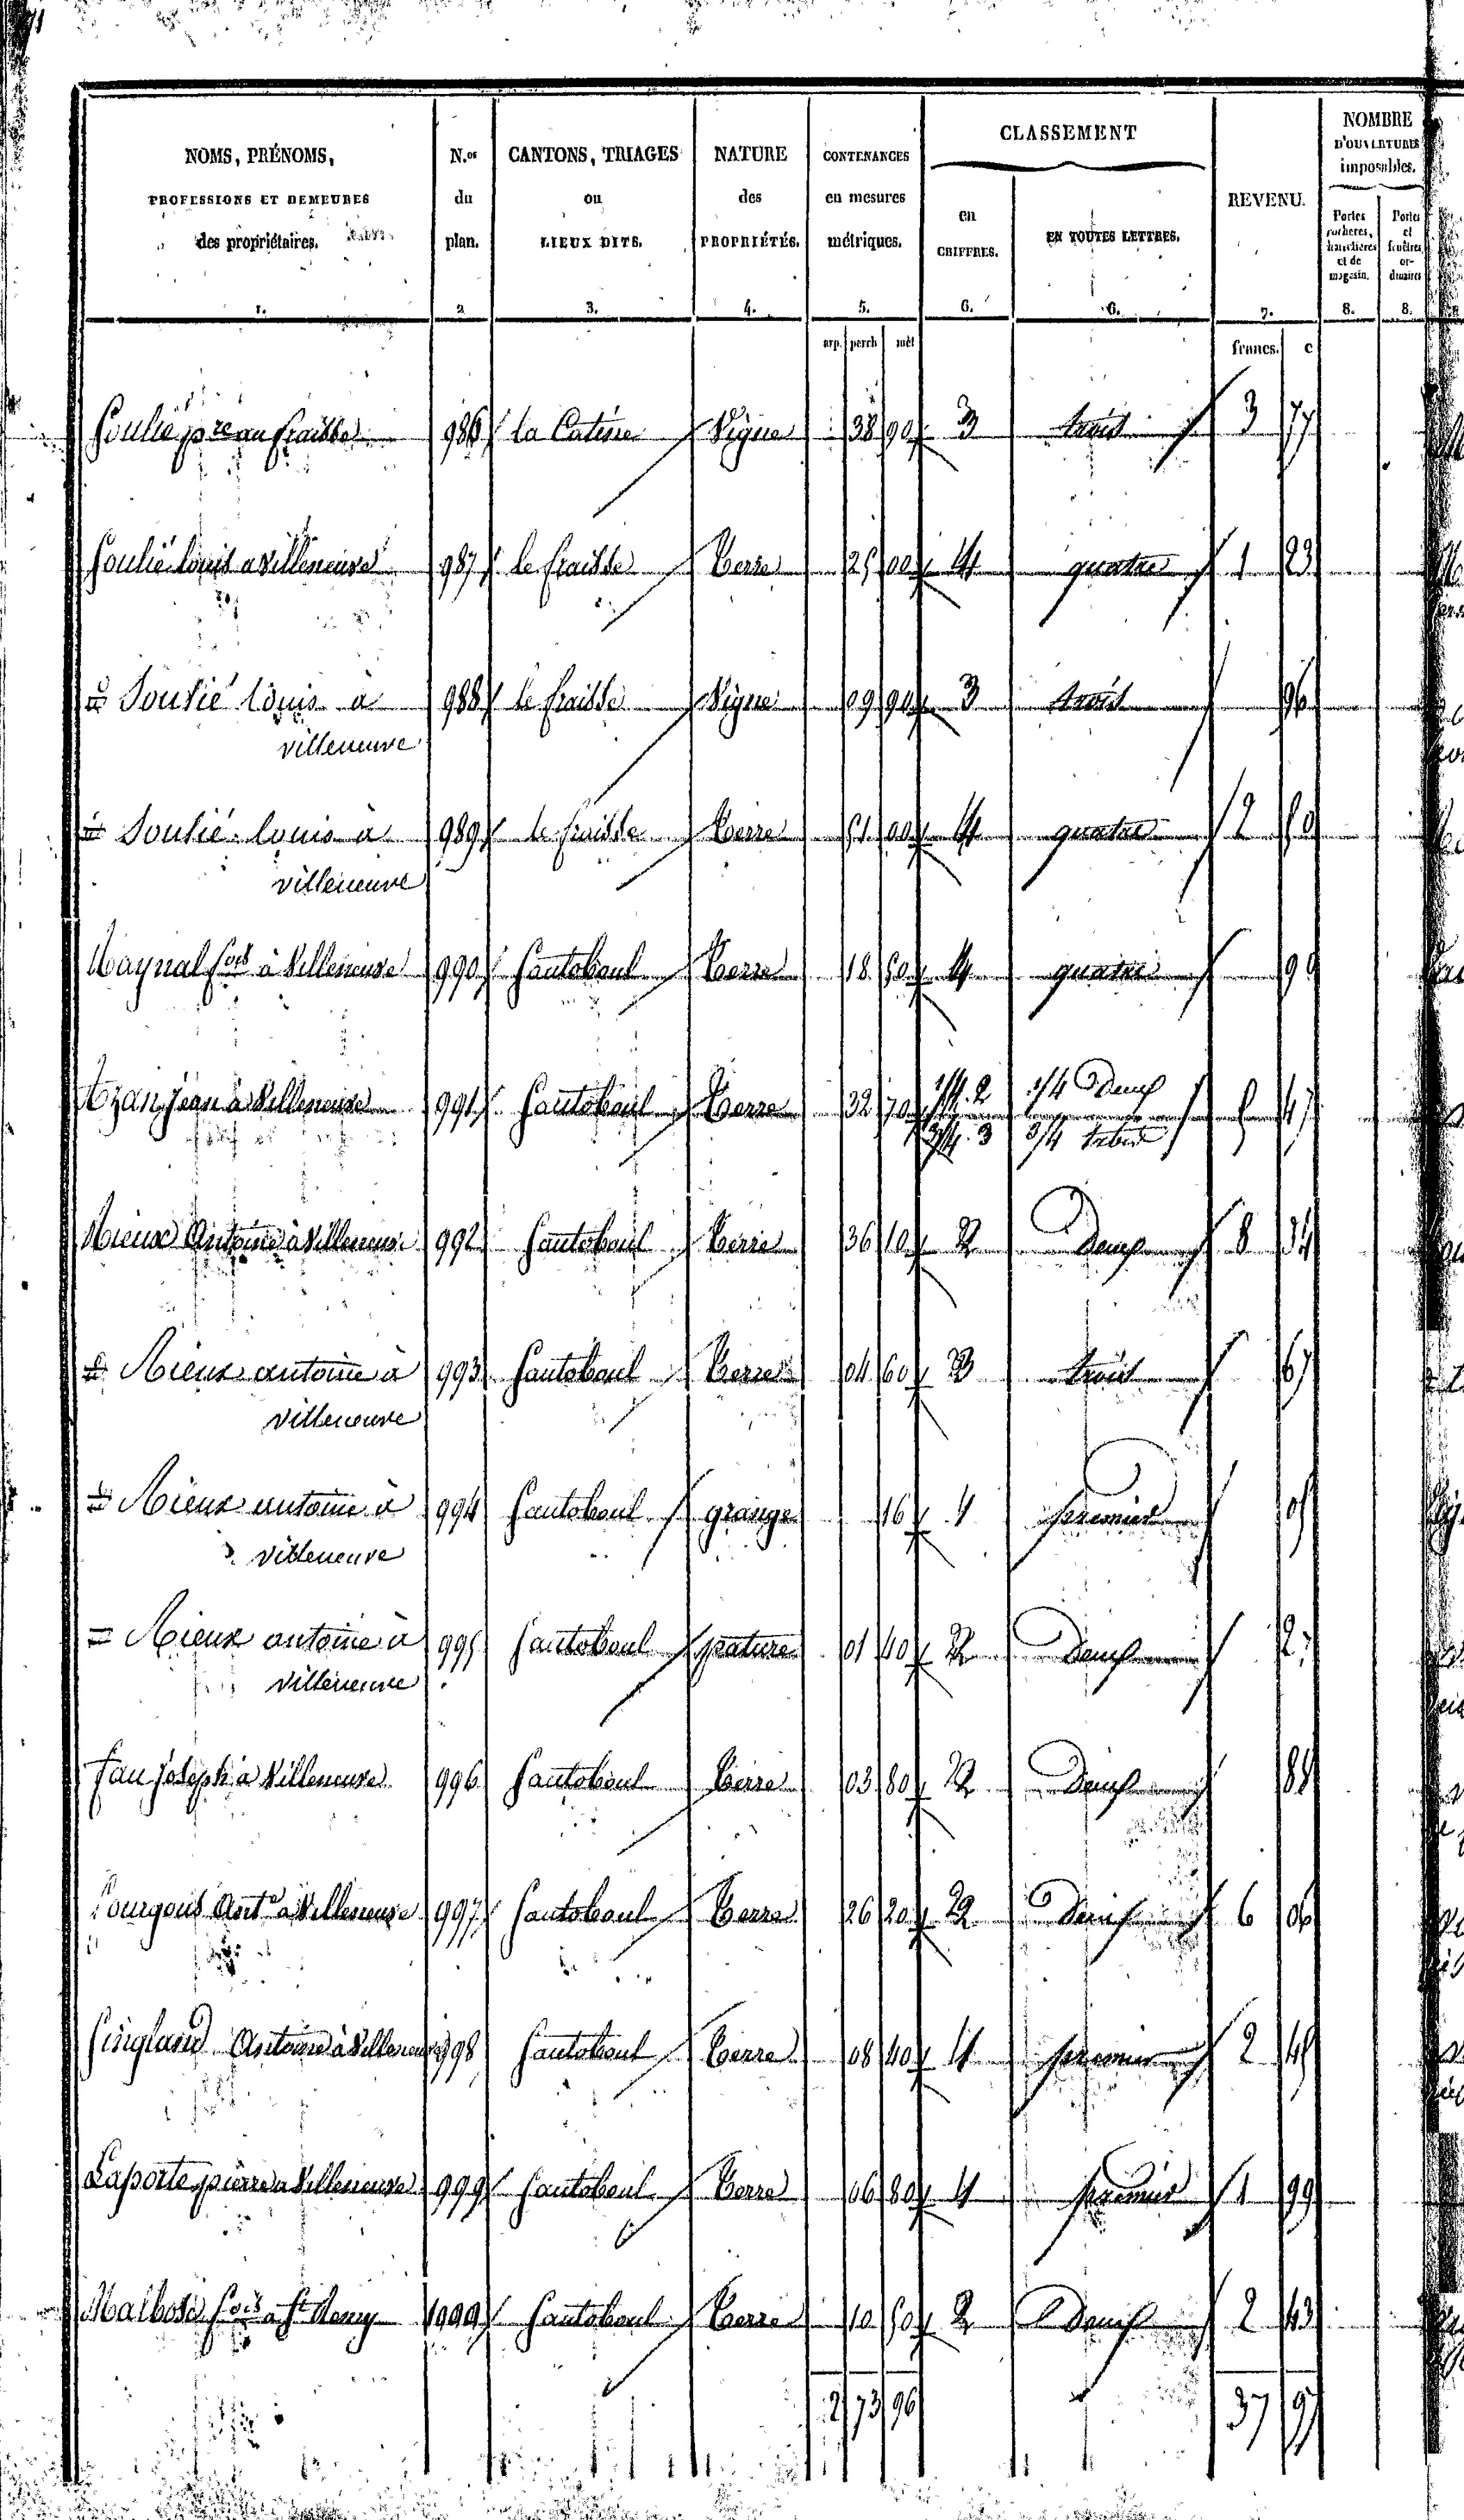 NOMS, PRÉNOMS, PROFESSIONS ET DEMEURES des propriétaires. 1.
N.os du plan. 2
CANTONS, TRIAGES ou LIEUX DITS. 3.
NATURE des PROPRIÉTÉS. 4.
CONTENANCES en mesures métriques. 5.
CLASSEMENT
en CHIFFRES. 6.
EN TOUTES LETTRES. 6.
REVENU. 7.
NOMBRE D'OUVERTURES imposables.
Portes cochères, charretières et de magasin. 8.
Portes et fenêtres ordinaires 8.
arp. perch mèt francs. c
Soulié pre au fraisse 986 la Catine Vigne 38 90 3 trois 3 77
Soulié louis a Villeneuve 987 le fraisse Terre 25 00 4 quatre 1 23
= Soulié louis a villeneuve 988 le fraisse Vigne 09 90 3 trois 96
= Soulié louis a villeneuve 989 le fraisse Terre 51 00 4 quatre 2 50
Raynal fois à Villeneuve 990 Cantoboul Terre 18 50 4 quatre 90
jean à Villeneuve 991 Cantoboul Terre 32 70 1/4. 2 1/4 Deux 5 47
3/4. 3 3/4 trois
Antoine à Villeneuve 992 Cantoboul Terre 36 10 2 Deux 8 34
= antoine à villeneuve 993 Cantoboul Terre 04 60 3 trois 67
= antoine à villeneuve 994 Cantoboul grange 16 1 premier 05
= antoine à villeneuve 995 Cantoboul pature 01 40 2 Deux
Fau joseph a Villeneuve 996 Cantoboul Terre 03 80 2 Deux 88
Antne a Villeneuve 997 Cantoboul Terre 26 20 2 Deux 6 06
Antoine à Villeneuve 998 Cantoboul Terre 08 40 1 premier 2 45
Laporte pierre a Villeneuve 999 Cantoboul Terre 06 80 1 premier 1 99
Malbosc fois a St Remy 1000 Cantoboul Terre 10 50 2 Deux 2 43
2 73 96 37 97